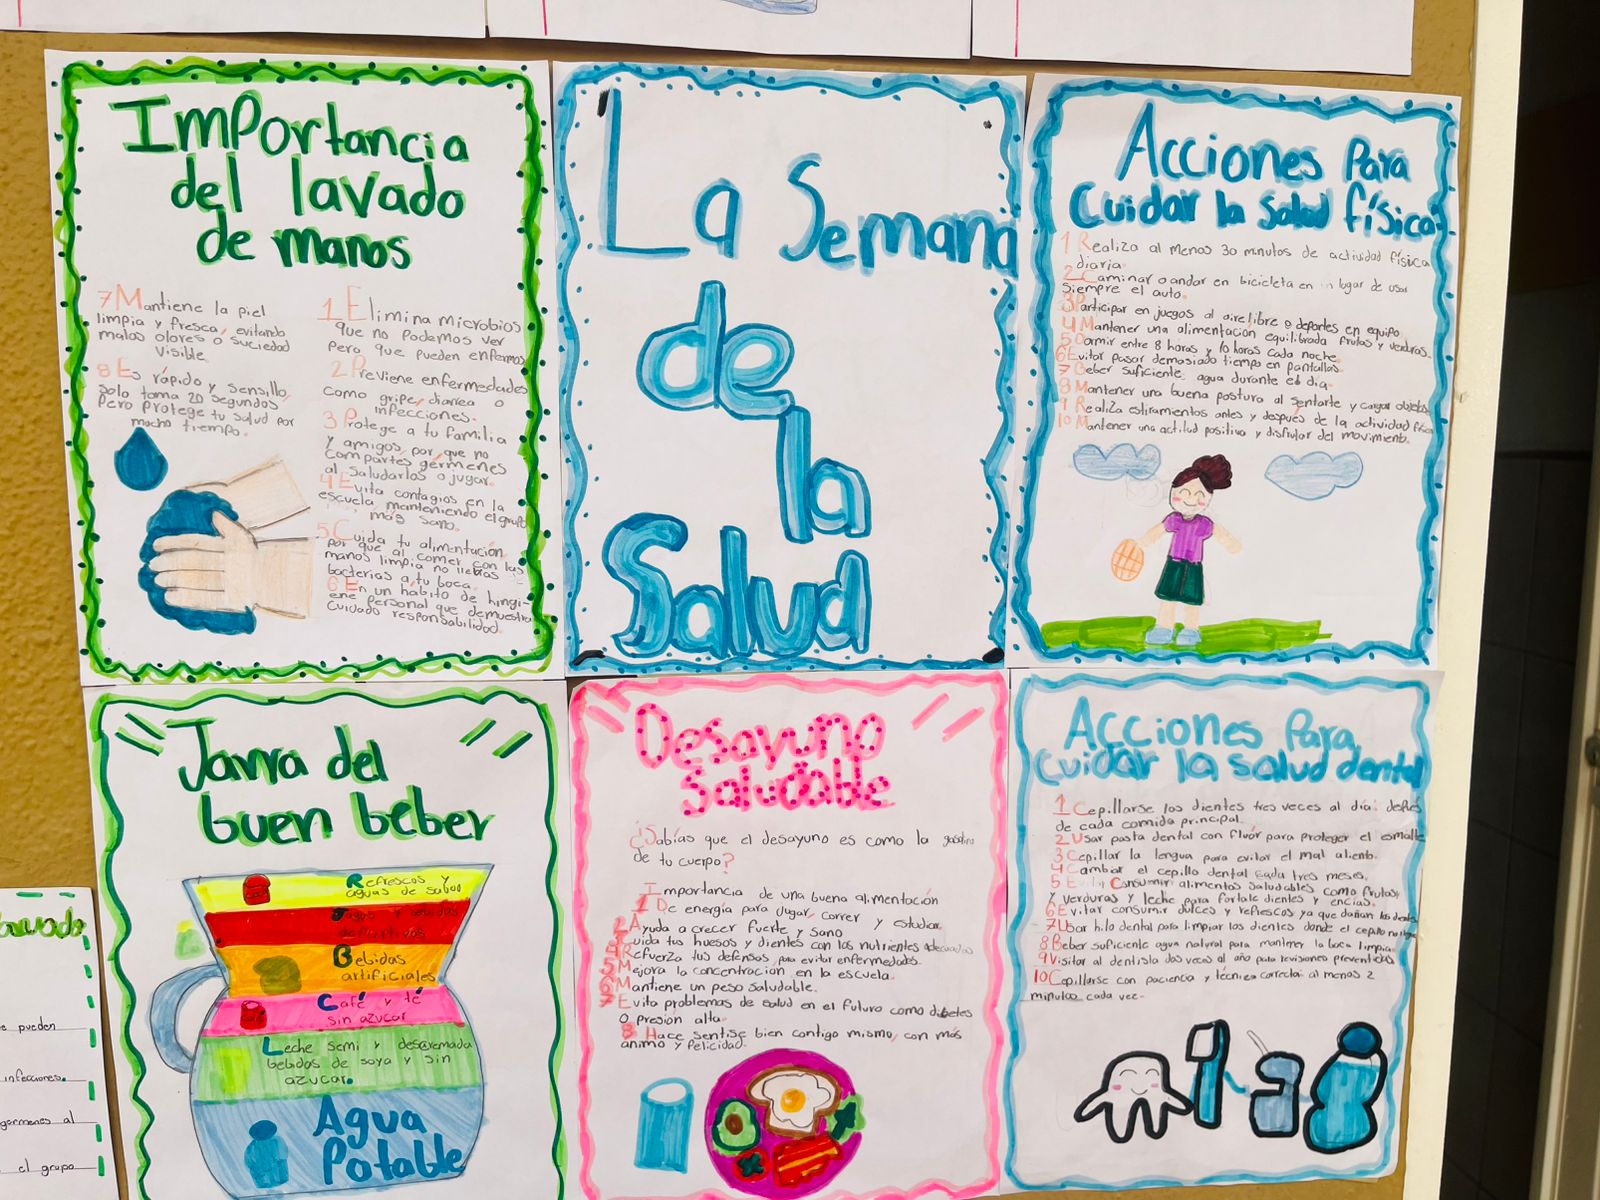 Importancia
del lavado
de manos
7 Mantiene la piel
limpia y fresca, evitando
malos olores o suciedad
visible.
8 Es rápido y sensillo,
solo toma 20 segundos
pero protege tu salud por
mucho tiempo.
1 Elimina microbios
que no podemos ver
pero que pueden enfermos
2 Previene enfermedades
como gripe, diarrea o
infecciones.
3 Protege a tu familia
y amigos, por que no
compartes gérmenes
al saludarlos o jugar.
4 Evita contagios en la
escuela manteniendo el grupo
más sano.
5 Cuida tu alimentación
por que al comer con las
manos limpia no llebras
bacterias a tu boca.
6 En un hábito de hingi-
ene personal que demuestra
cuidado responsabilidad.
La Semana
de
la
Salud
Acciones Para
Cuidar la Salud física
1 Realiza al menos 30 minutos de actividad física
diaria.
2 Caminar o andar en bicicleta en lugar de usar
siempre el auto.
3 Participar en juegos al aire libre o deportes en equipo
4 Mantener una alimentación equilibrada frutas y verduras.
5 Dormir entre 8 horas y 10 horas cada noche.
6 Evitar pasar demasiado tiempo en pantallas.
7 Beber suficiente agua durante el dia.
8 Mantener una buena postura al sentarte y cargar objetos
9 Realiza estiramientos antes y después de la actividad física
10 Mantener una actitud positiva y disfrutar del movimiento.
Jarra del
buen beber
Refrescos y
aguas de sabor
Jugos y bebidas
deportivas
Bebidas
artificiales
Café y té
sin azucar
Leche semi y descremada
bebidas de soya y sin
azucar.
Agua
Potable
Desayuno
Saludable
¿Sabías que el desayuno es como la gasolina
de tu cuerpo?
Importancia de una buena alimentación
1 De energía para jugar, correr y estudiar
2 Ayuda a crecer fuerte y sano
Cuida tus huesos y dientes con los nutrientes adecuados
Refuerza tus defensas para evitar enfermedades.
Mejora la concentracion en la escuela.
Mantiene un peso saludable.
Evita problemas de salud en el futuro como diabetes
o presion alta.
8 Hace sentise bien contigo mismo, con más
animo y felicidad.
Acciones Para
cuidar la salud dental
1 Cepillarse los dientes tres veces al día despés
de cada comida principal.
2 Usar pasta dental con fluór para proteger el esmalte
3 Cepillar la lengua para evitar el mal aliento.
4 Cambiar el cepillo dental cada tres meses.
5 Consumir alimentos saludables como frutas
y verduras y leche para fortale dientes y encías.
6 Evitar consumir dulces y refrescos ya que dañan los dientes
7 Usar hilo dental para limpiar los dientes donde el cepillo no llega
8 Beber suficiente agua natural para mantener la boca limpia
9 Visitar al dentista dos veces al año para revisiones preventivas
10 Cepillarse con paciencia y técnica correcta al menos 2
minutos cada vez.
lavado
e pueden
infecciones.
germenes al
el grupo